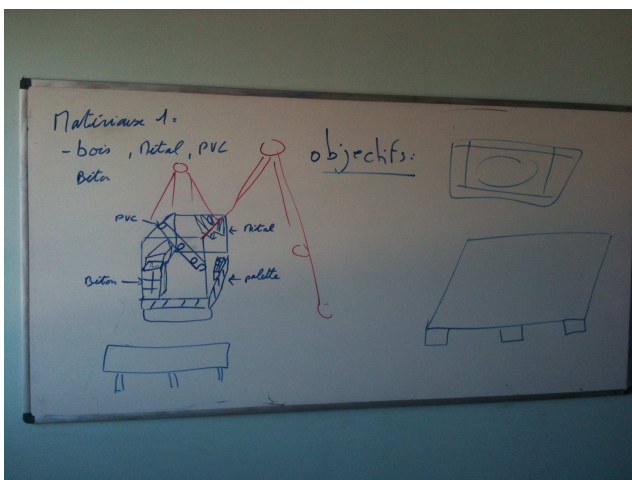 Matériaux 1:
- bois, Métal, PVC
Béton
objectifs:
PVC
Métal
Béton
palette